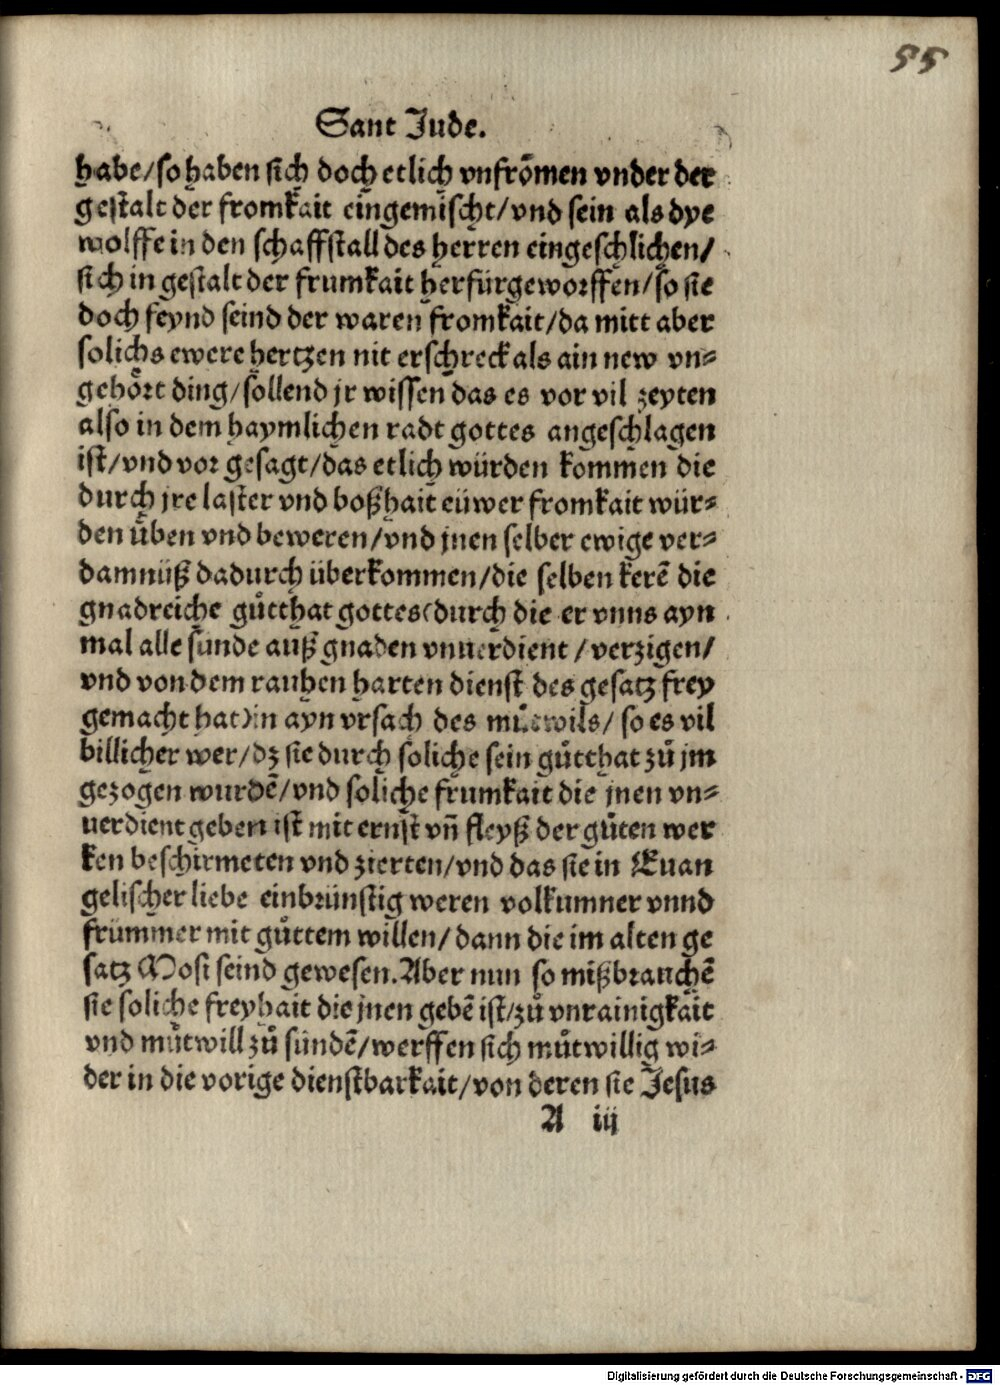 55
Sant Jude.
habe/so haben sich doch etlich vnfrõmen vnder der
gestalt der fromkait eingemischt/vnd sein als dye
wolffe in den schaffstall des herren eingeschlichen/
sich in gestalt der frumkait herfürgeworffen/so sie
doch feynd seind der waren fromkait/da mitt aber
solichs ewere hertzen nit erschreck als ain new vn⸗
gehört ding/sollend jr wissen das es vor vil zeyten
also in dem haymlichen radt gottes angeschlagen
ist/vnd vor gesagt/das etlich würden kommen die
durch jre laster vnd boßhait eüwer fromkait wür⸗
den üben vnd beweren/vnd jnen selber ewige ver⸗
damnüß dadurch überkommen/die selben kerẽ die
gnadreiche gůtthat gottes(durch die er vnns ayn
mal alle sünde auß gnaden vnuerdient/verzigen/
vnd von dem rauhen harten dienst des gesatz frey
gemacht hat)in ayn vrsach des můtwils/ so es vil
billicher wer/dz sie durch soliche sein gůtthat zů jm
gezogen wurdẽ/vnd soliche frumkait die jnen vn⸗
uerdient geben ist mit ernst vñ fleyß der gůten wer
ken beschirmeten vnd zierten/vnd das sie in Euan
gelischer liebe einbrünstig weren volkumner vnnd
frümmer mit gůttem willen/dann die im alten ge
satz Mosi seind gewesen.Aber nun so mißbrauchẽ
sie soliche freyhait die jnen gebẽ ist/zů vnrainigkait
vnd můtwill zů sündẽ/werffen sich můtwillig wi⸗
der in die vorige dienstbarkait/von deren sie Jesus
A iij
Digitalisierung gefördert durch die Deutsche Forschungsgemeinschaft - DFG